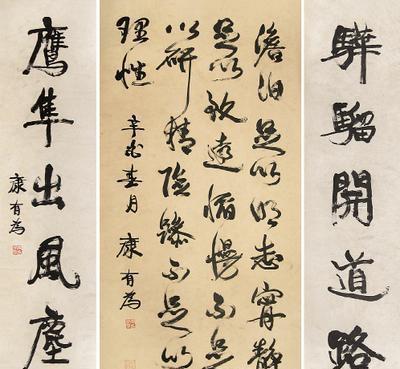 驊騮開道路
澹泊足以明志寧靜
足以致遠慆慢不足
以研精險躁不足以
理性
辛春月 康有為
鷹隼出風塵
康有為